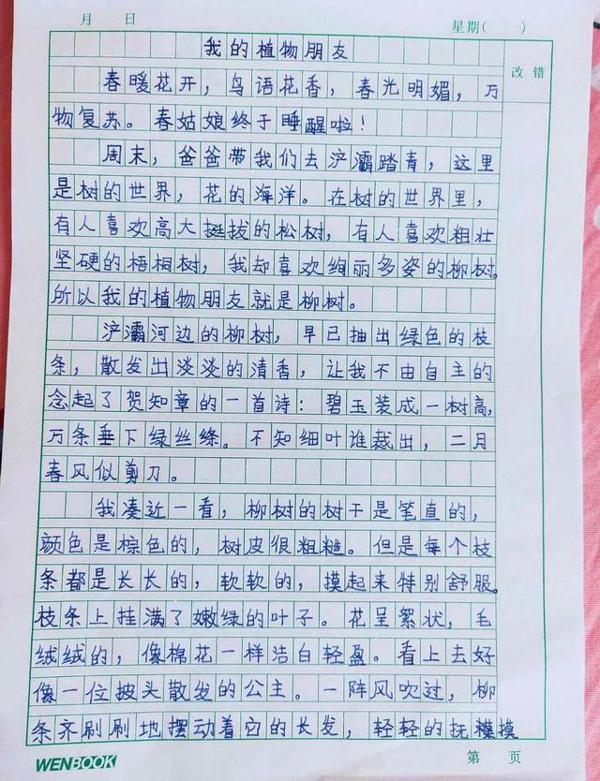 月 日 星期( )
我的植物朋友
改错
春暖花开，鸟语花香，春光明媚，万
物复苏。春姑娘终于睡醒啦！
周末，爸爸带我们去浐灞踏青，这里
是树的世界，花的海洋。在树的世界里，
有人喜欢高大挺拔的松树，有人喜欢粗壮
坚硬的梧桐树，我却喜欢绚丽多姿的柳树。
所以我的植物朋友就是柳树。
浐灞河边的柳树，早已抽出绿色的枝
条，散发出淡淡的清香，让我不由自主的
念起了贺知章的一首诗：碧玉装成一树高，
万条垂下绿丝绦。不知细叶谁裁出，二月
春风似剪刀。
我凑近一看，柳树的树干是笔直的，
颜色是棕色的，树皮很粗糙。但是每个枝
条都是长长的，软软的，摸起来特别舒服。
枝条上挂满了嫩绿的叶子。花呈絮状，毛
绒绒的，像棉花一样洁白轻盈。看上去好
像一位披头散发的公主。一阵风吹过，柳
条齐刷刷地摆动着它的长发，轻轻的抚摸
WENBOOK 第 页